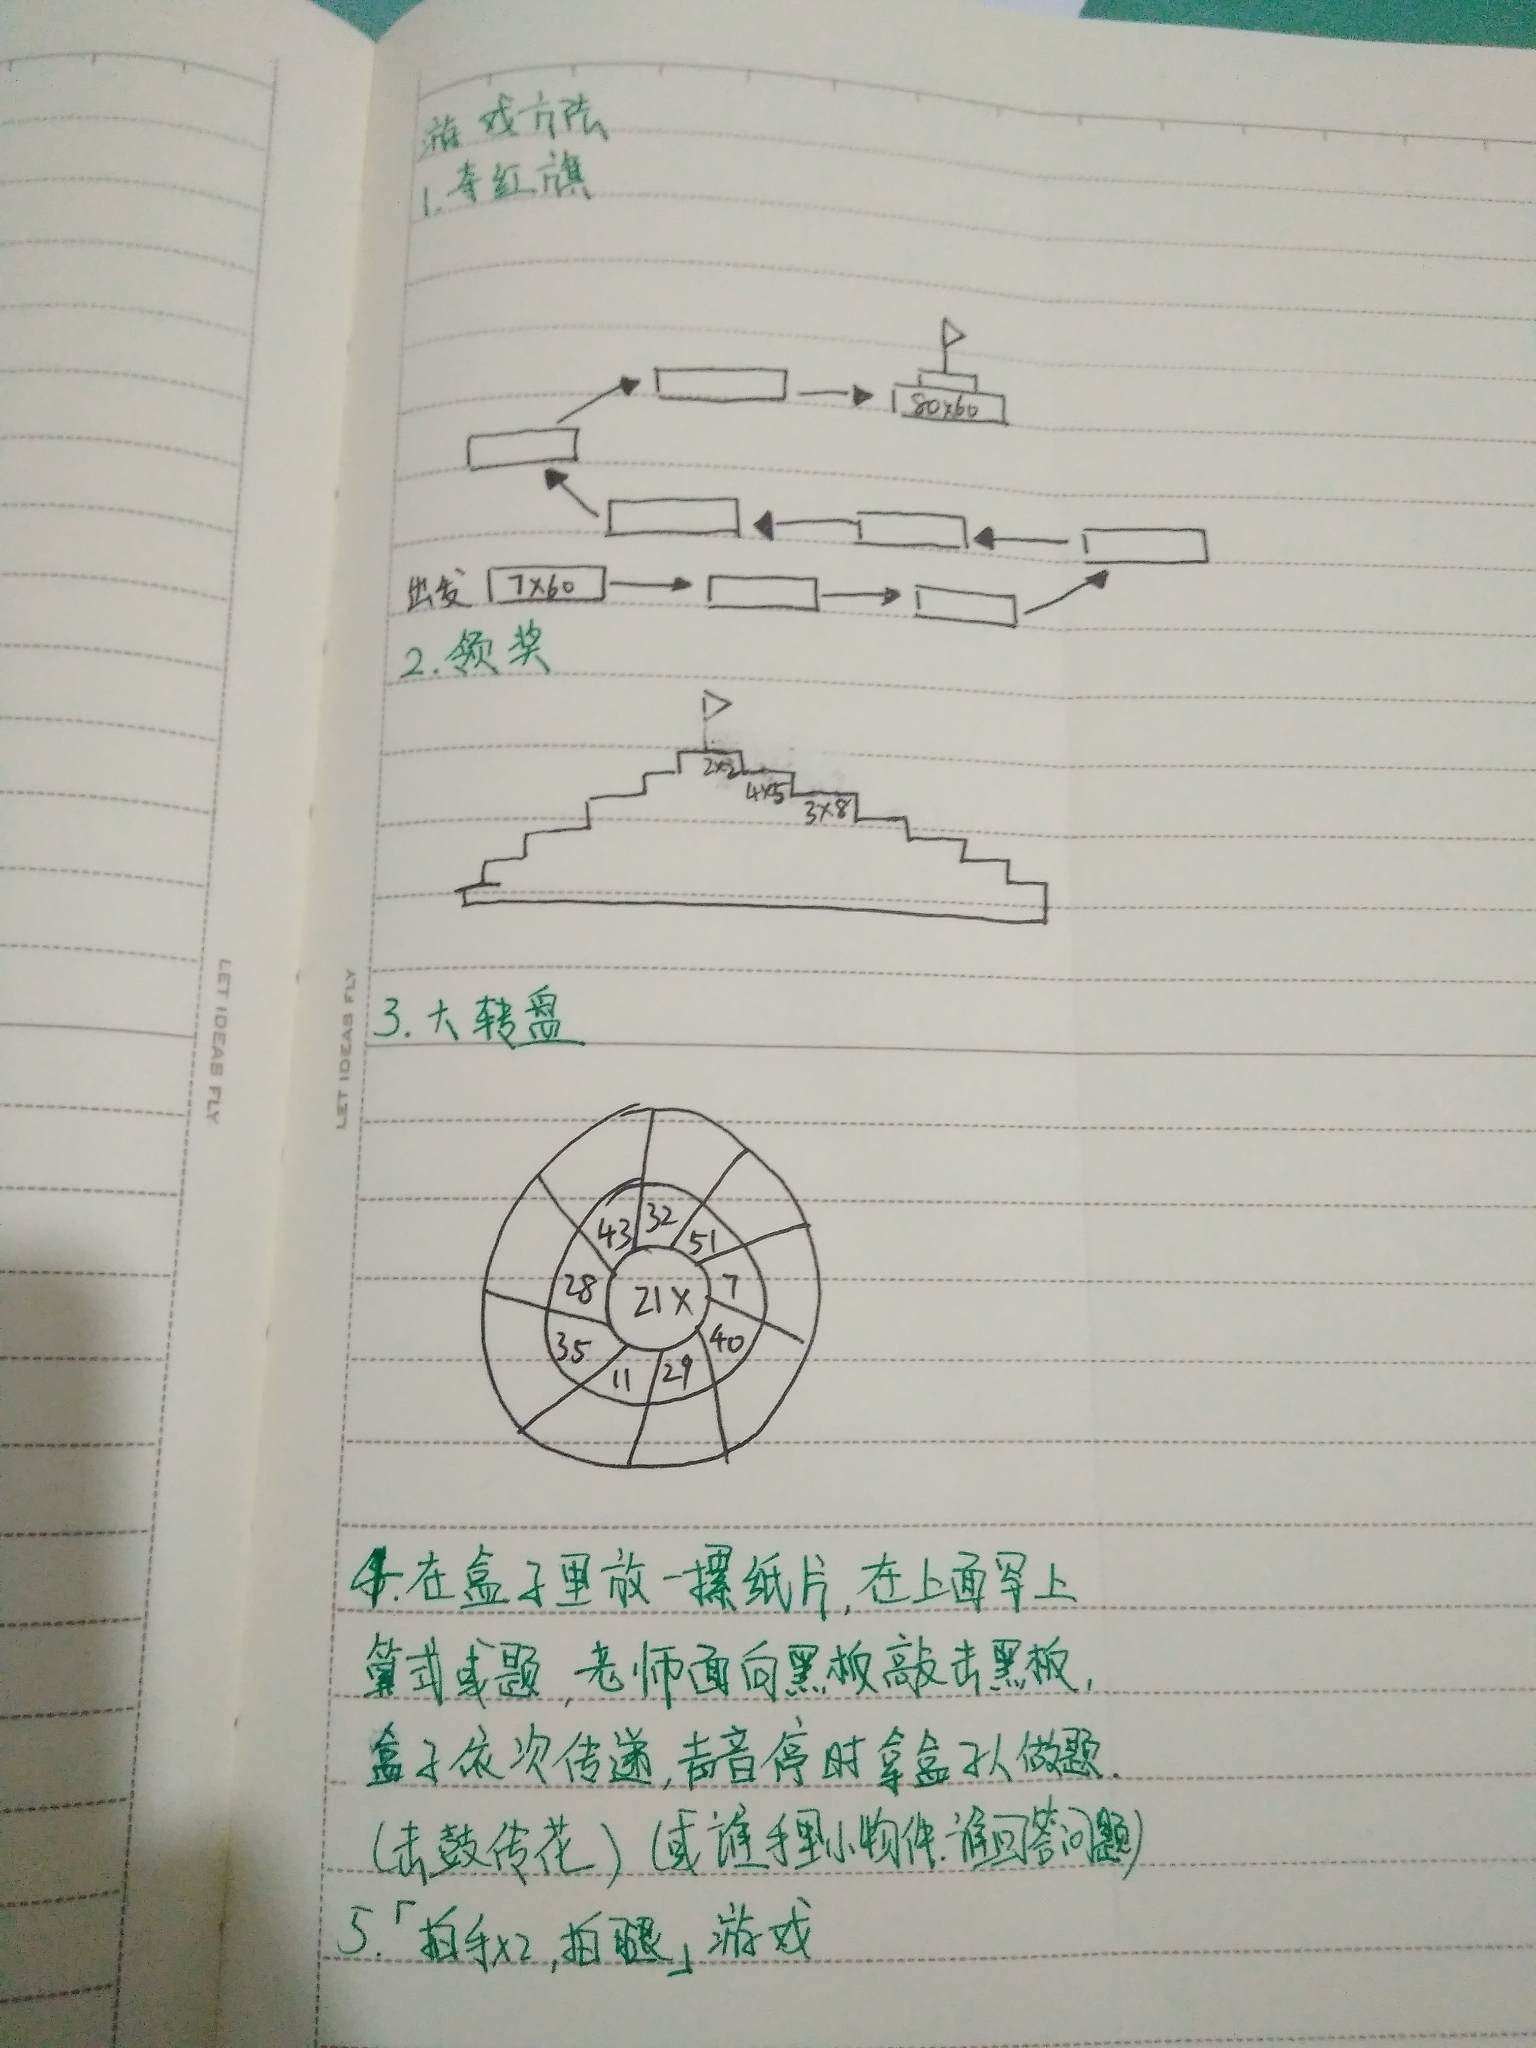 游戏方法
1.夺红旗
80×60
出发 7×60
2.领奖
2×2
4×5
3×8
3.大转盘
43 32 51
28 21× 7
35 11 29 40
4.在盒子里放一摞纸片,在上面写上
算式或题,老师面向黑板敲击黑板,
盒子依次传递,声音停时拿盒子人做题.
(击鼓传花)(或谁手里小物件.谁回答问题)
5.「拍手×2,拍腿」游戏
LET IDEAS FLY
LET IDEAS FLY